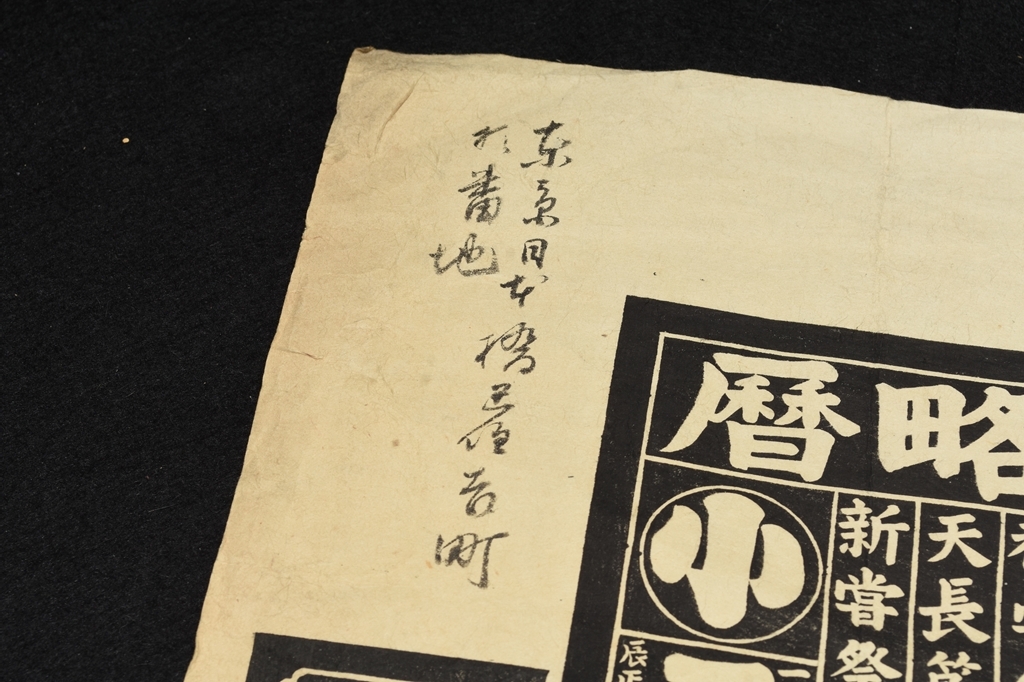 東京日本橋區住吉町
番地
略暦
天長節
新嘗祭
小
辰正